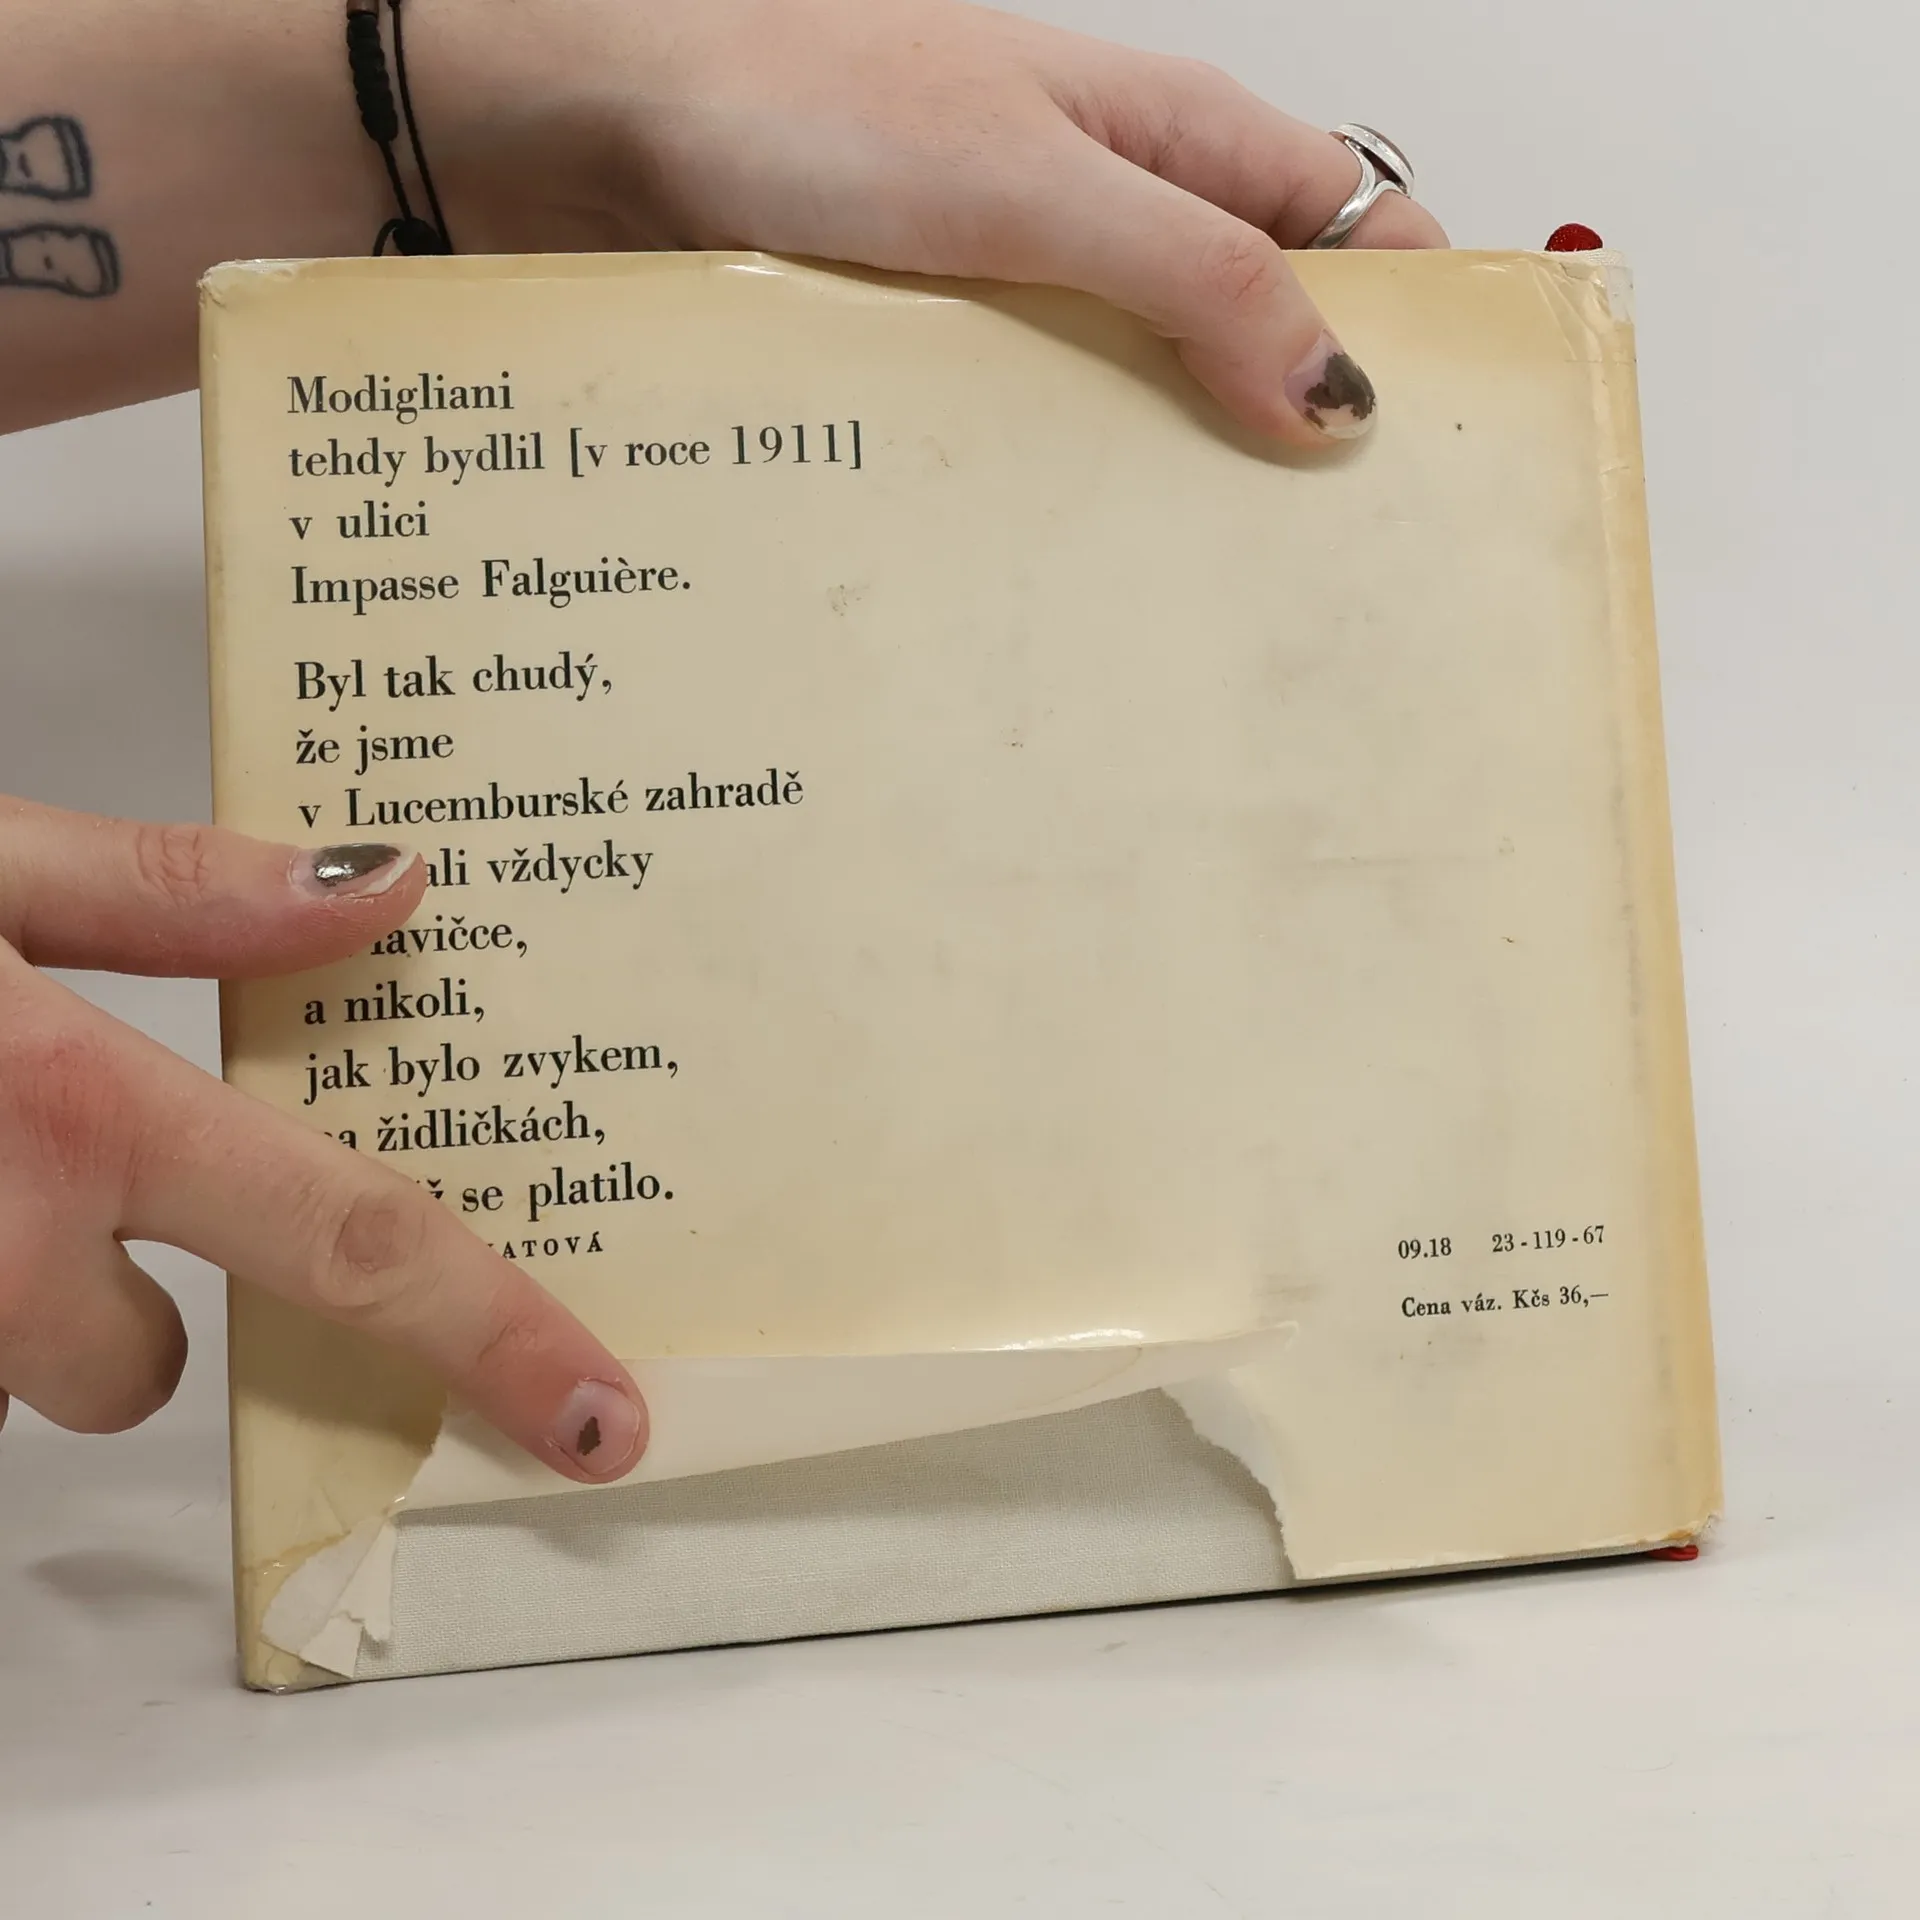 Modigliani
tehdy bydlil [v roce 1911]
v ulici
Impasse Falguière.
Byl tak chudý,
že jsme
v Lucemburské zahradě
vždycky
a nikoli,
jak bylo zvykem,
židličkách,
se platilo.
09.18 23-119-67
Cena váz. Kčs 36,—